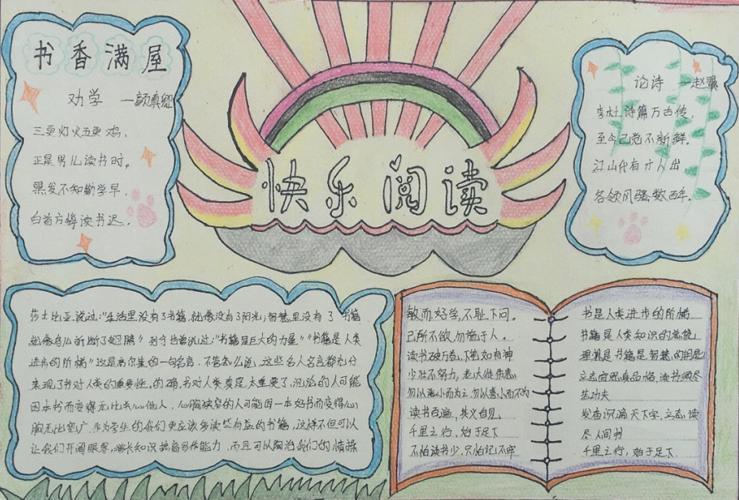 书香满屋
劝学 一颜真卿
三更灯火五更鸡，
正是男儿读书时。
黑发不知勤学早，
白首方悔读书迟。
快乐阅读
论诗 一赵翼
李杜诗篇万古传，
至今已觉不新鲜。
江山代有才人出
各领风骚数百年。
莎士比亚说过：“生活里没有了书籍，就像没有了阳光；智慧里没有了书籍
就像鸟儿折断了翅膀”列宁也曾说过：“书籍是巨大的力量”“书籍是人类
进步的阶梯”这是高尔基的一句名言，不管怎么说，这些名人名言都充分
表现了书对人类的重要性。的确，书对人类真是太重要了，
因本书而变得无比，心胸狭窄的人可能因一本好书而变得心
胸无比宽广，作为学生的我们更应该多读些有益的书籍，这样不但可以
让我们开阔眼界，增长知识提高思考能力，而且可以陶冶我们的情操
敏而好学，不耻下问。
己所不欲，勿施于人。
读书破万卷，下笔如有神
少壮不努力，老大徒伤悲
勿以恶小而为之，勿以善小而不为
读书百遍，其义自见
千里之行，始于足下
不怕读书少，只怕记不牢
书是人类进步的阶梯
书籍是人类知识的总统
理算是书籍是智慧的钥匙
立志宜思真品格，读书须尽
苦功夫
发奋识遍天下字，立志读
尽人间书
千里之行，始于足下